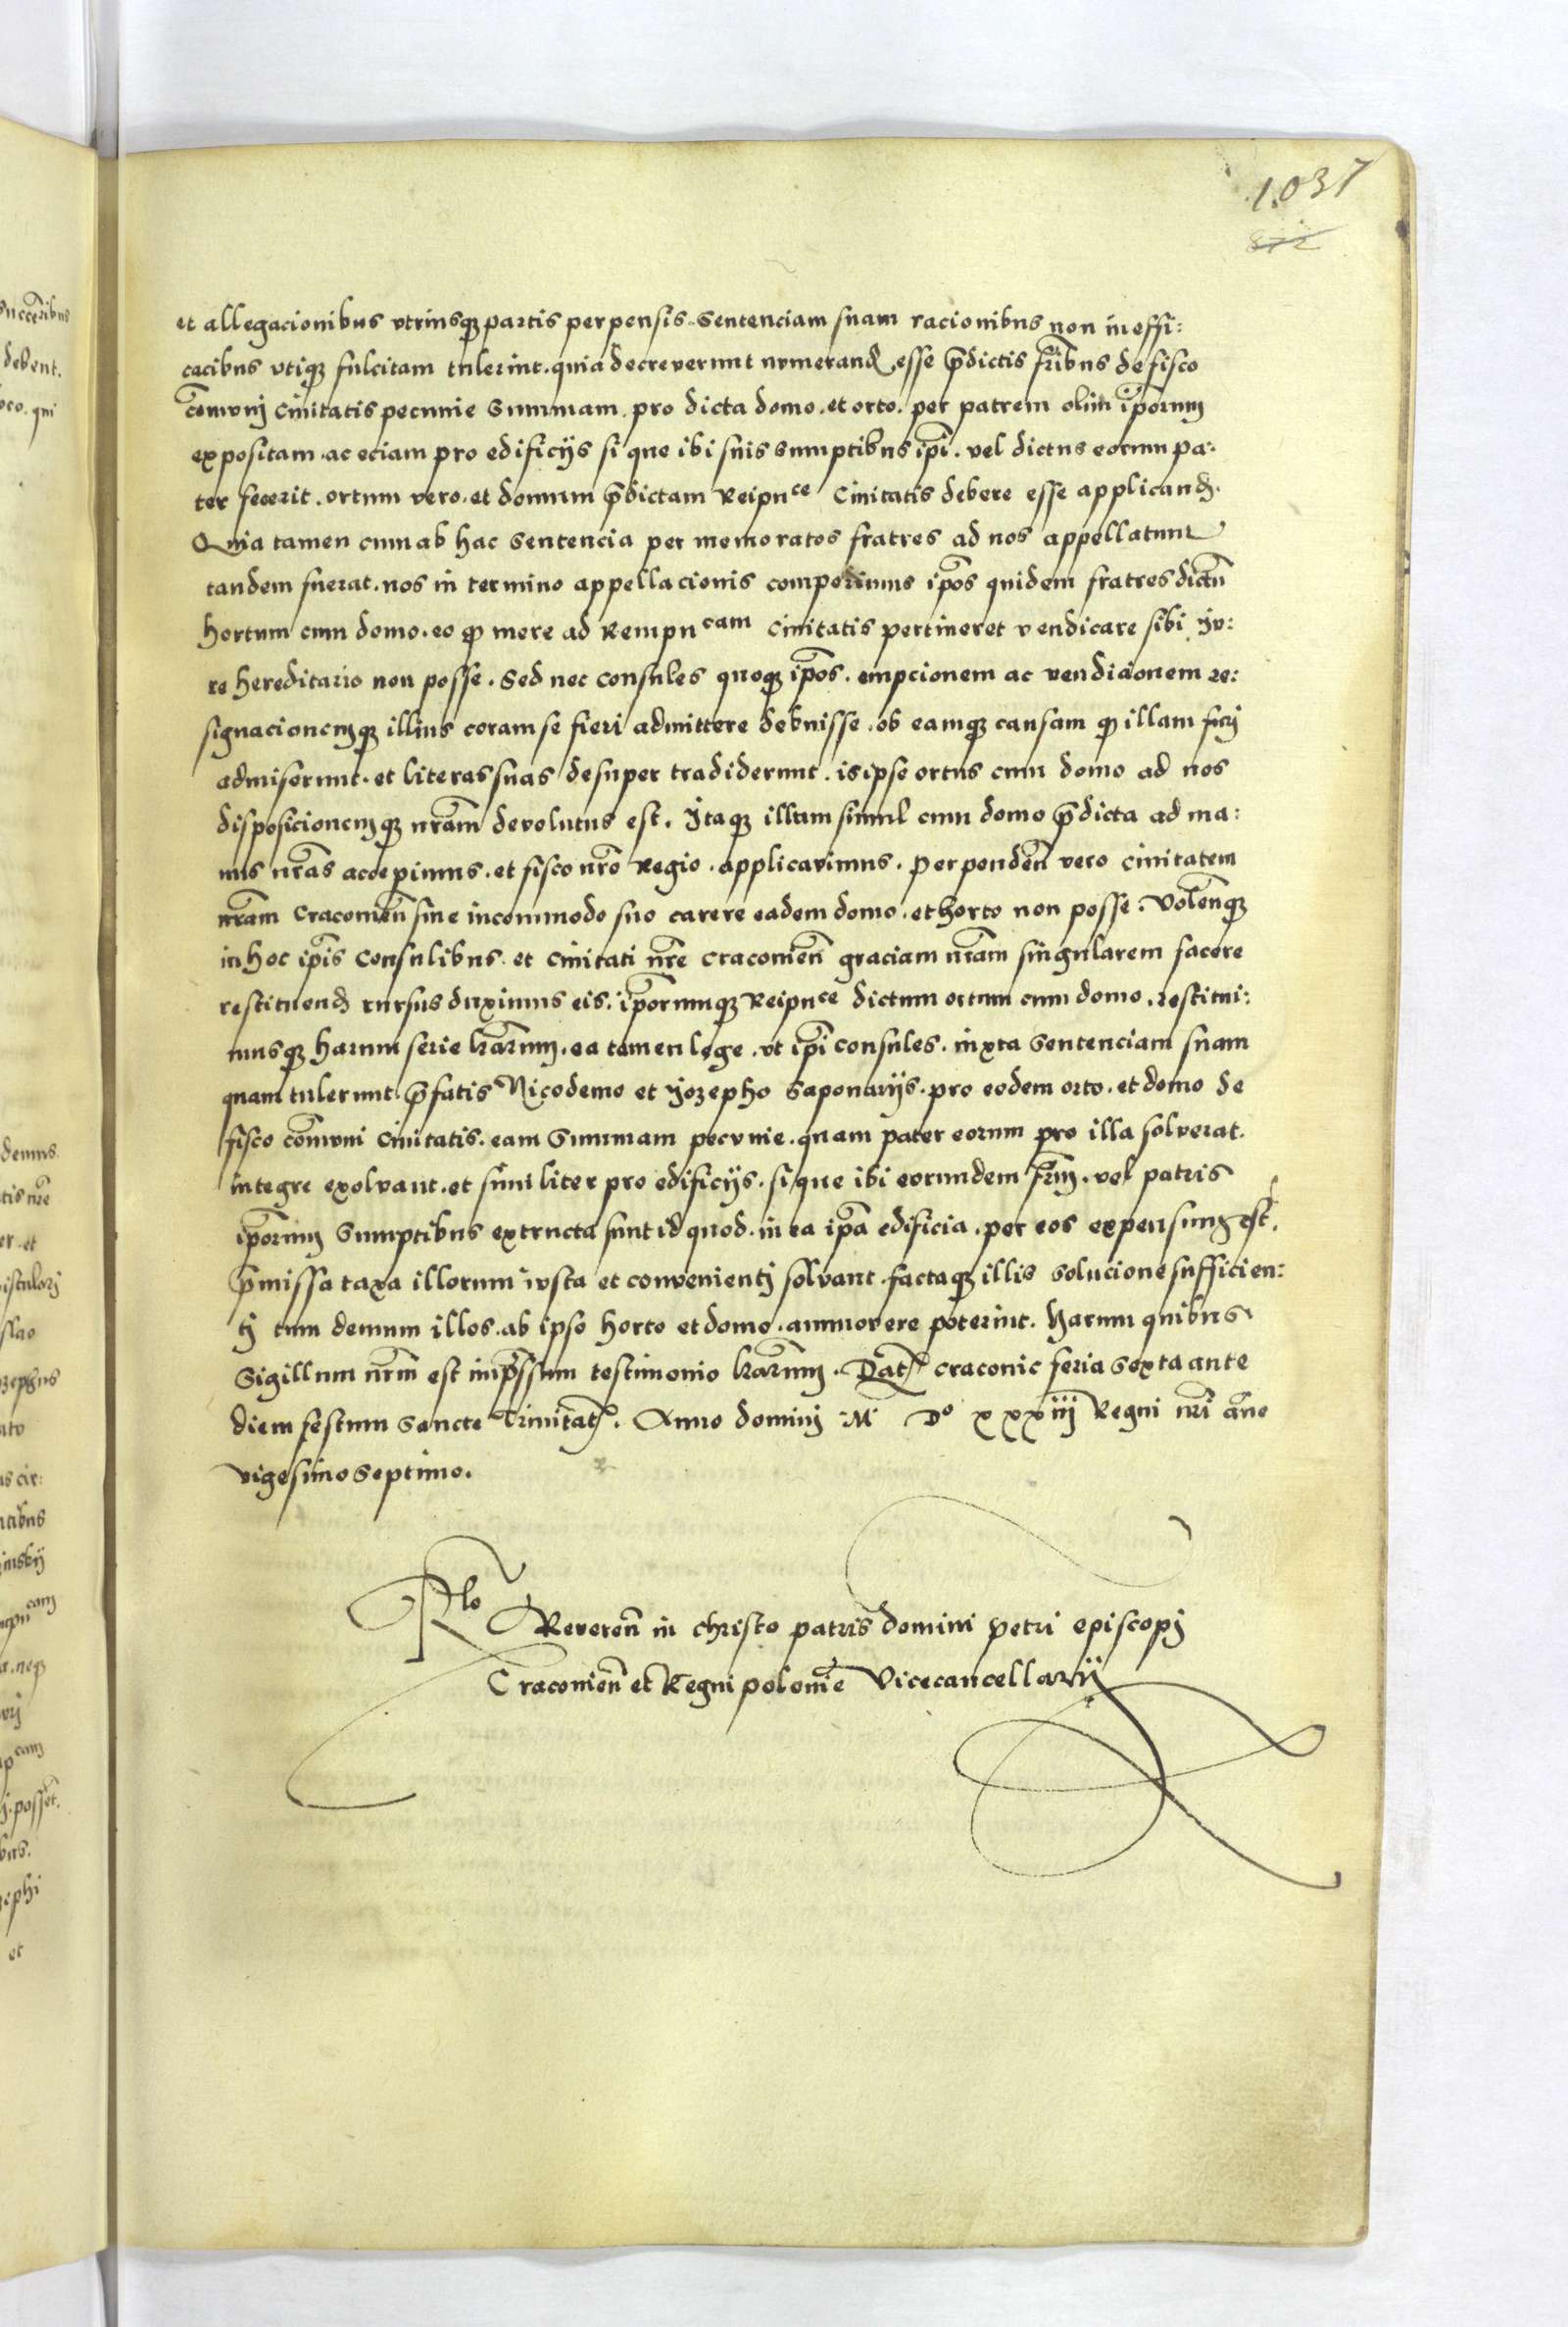 1037
872
et allegacionibus vtriusqꝫ partis perpensis. Sentenciam suam racionibus non ineffi:
cacibus vtiqꝫ fulcitam tulerint. quia decreverunt numerand esse p̄dictis fr̄ibus de fisco
com̄uni Civitatis pecunie Summam pro dicta domo. et orto. per patrem olim ip̄orum
expositam. ac eciam pro edificijs si que ibi suis sumptibus ip̄i. vel dictus eorum pa:
ter fecerit. ortum vero. et domum p̄dictam Reipuce Civitatis debere esse applicand.
Quia tamen cum ab hac Sentencia per memoratos fratres ad nos appellatum
tandem fuerat. nos in termino appellacionis comperimus ip̄os quidem fratres dictū
hortum cum domo. eo qꝫ mere ad Rempucam Civitatis pertineret vendicare sibi iu:
re hereditario non posse. Sed nec Consules quoqꝫ ip̄os. empcionem ac vendicionem re:
signacionemqꝫ illius coram se fieri admittere debuisse. ob eamqꝫ causam qꝫ illam fieri
admiserunt. et literas suas desuper tradiderunt. is ipse ortus cum domo ad nos
disposicionemqꝫ nr̄am devolutus est. Itaqꝫ illum simul cum domo p̄dicta ad ma:
nus nr̄as accepimus. et fisco nr̄o Regio. applicavimus. Perpenden̄ vero civitatem
nr̄am Cracovien̄ sine incommodo suo carere eadem domo. et horto non posse. Volen̄qꝫ
in hoc ip̄is Consulibus. et Civitati nr̄e Cracovien̄ graciam nr̄am singularem facere
restituend rursus duximus eis. ip̄orumqꝫ Reipuce dictum ortum cum domo. restitui:
musqꝫ harum serie lr̄arum. ea tamen lege. vt ip̄i Consules. iuxta Sentenciam suam
quam tulerunt. p̄fatis Nicodemo et Jozepho Saponarijs. pro eodem orto. et domo de
fisco com̄uni Civitatis. eam Summam pecunie. quam pater eorum pro illa solverat.
integre exolvant. et similiter pro edificijs. si que ibi eorundem fr̄um. vel patris
ip̄orum Sumptibus extructa sunt id quod. in ea ip̄a edificia. per eos expensum est.
p̄missa taxa illorum iusta et convenienti solvant. factaqꝫ illis Solucione sufficien:
ti tum demum illos. ab ipso horto et domo. ammovere poterint. Harum quibus
Sigillum nr̄m est imp̄ssum testimonio lr̄arum. Dat Cracovie feria Sexta ante
diem festum Sancte Trinitat. Anno domini M Do xxxiij Regni nr̄i an̄o
vigesimo Septimo.
Rlo Reveren̄ in Christo patris domini Petri Episcopi
Cracovien̄ et Regni polonie Vicecancellarij